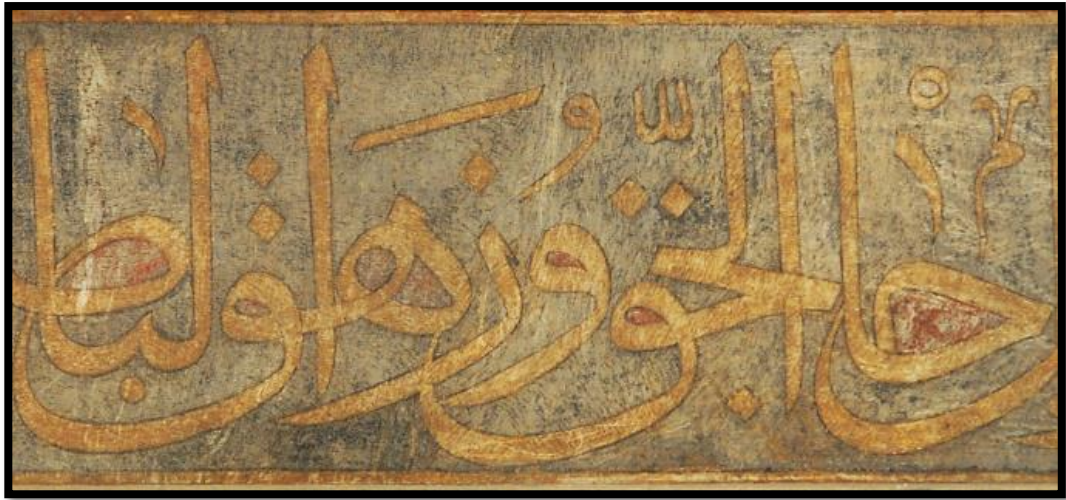 جاء الحق وزهق الباط